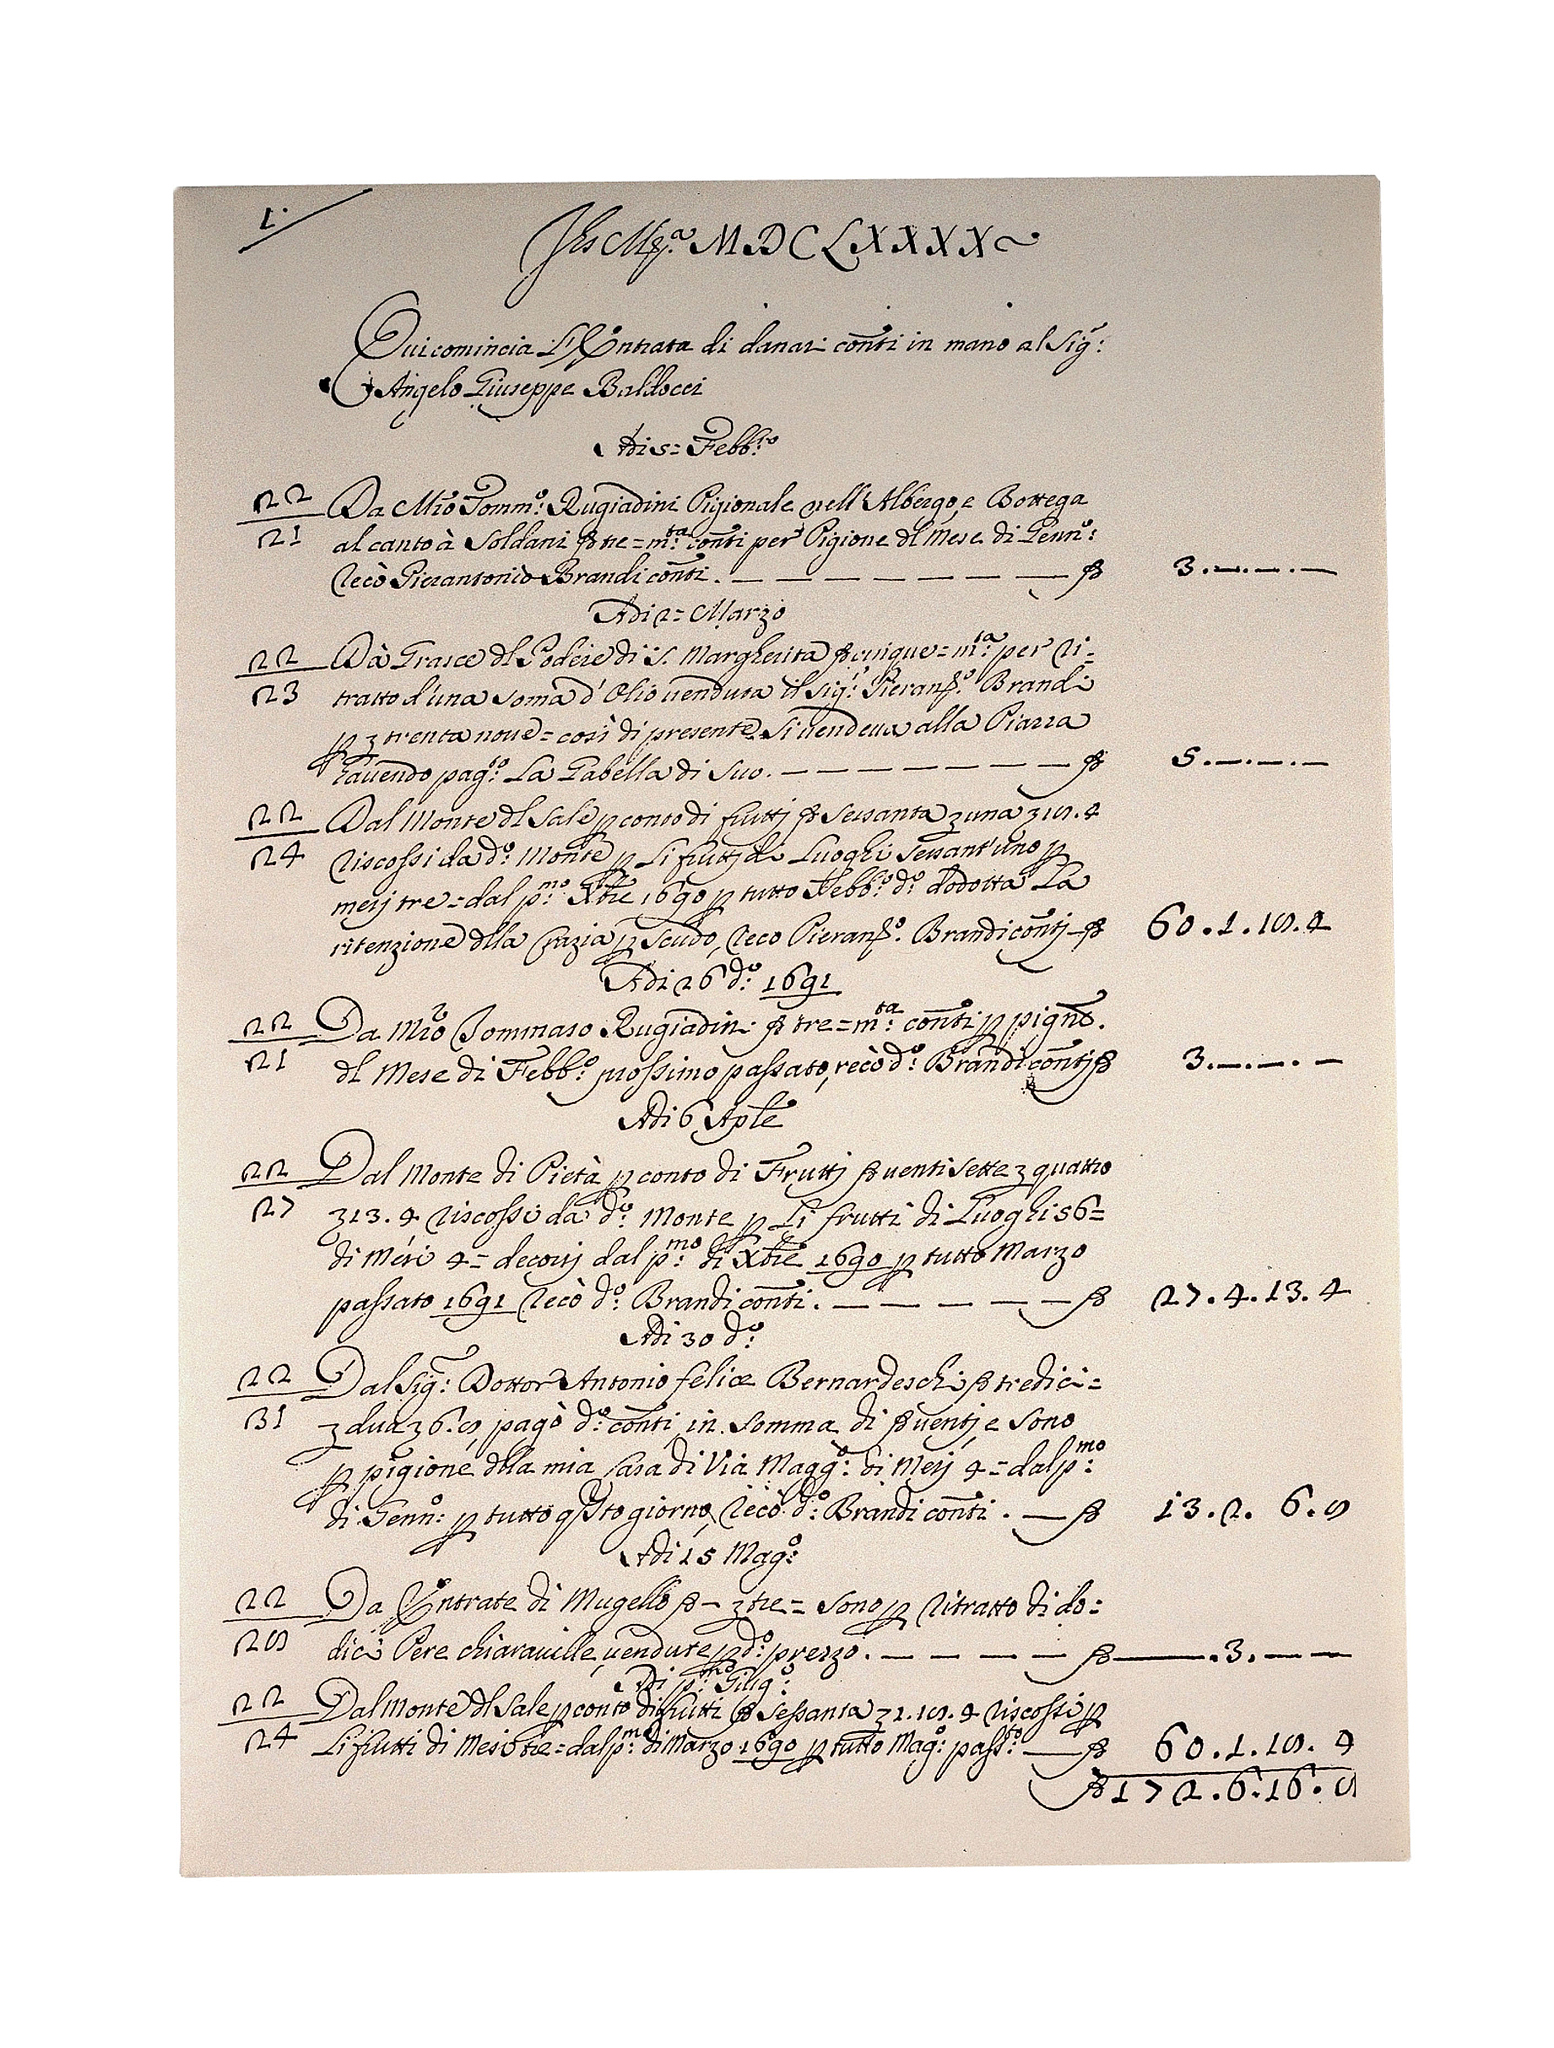 1.
Jhs Mª. MDCLXXXX
Qui comincia L'Entrata di danari conti in mano al Sig:
Angelo Giuseppe Baldocci
Adi 5= Febb:ro
22 Da Mro Tomm:o Rugiadini Pigionale nell'Albergo, e Bottega
21 al canto à Soldani tre= m:ta conti per Pigione dl Mese di Genn:o
recò Pierantonio Brandi conti. 3.—.—.—
Adi 2= Marzo
22 Dà Grasce dl Podere di S. Margherita cinque= m:ta per ri=
23 tratto d'una soma d'Olio venduta il Sig:r Pieran.o Brandi
p trenta noue= così di presente si vendeua alla Piazza
hauendo pag:to La Gabella di suo. 5.—.—.—
22 Dal Monte dl Sale p conto di frutti sessanta una 15.4
24 riscossi da d:o Monte p Li frutti di Luoghi sessant'uno p
mesi tre= dal p:mo Xbre 1690 p tutto Febb:o d:o dodotta La
ritenzione dlla Crazia p scudo, recò Pieran.o Brandi conti 60.1.15.4
Adi 26 d:o 1691
22 Da Mro Tommaso Rugiadini tre= m:ta conti p pigne.
21 dl Mese di Febb:o prossimo passato, recò d:o Brandi conti 3.—.—.—
Adi 6 Aple
22 Dal Monte di Pietà p conto di Frutti venti sette quattro
27 13.4 riscossi da d:o Monte p Li frutti di Luoghi 56=
di Mesi 4= decorsi dal p:mo di Xbre 1690 p tutto Marzo
passato 1691 recò d:o Brandi conti. 27.4.13.4
Adi 30 d:o
22 Dal Sig: Dottor Antonio felice Bernardeschi tredici=
31 dua 6.8, pagò d:o conti in somma di venti, e sono
p pigione dlla mia Casa di Via Magg:o di Mesi 4= dal p:mo
di Genn:o p tutto qsto giorno, recò d:o Brandi conti. 13.2.6.8
Adi 15 Mag:o
22 Da Entrate di Mugello — tre= sono p ritratto di do=
28 dici Pere chiarauille, vendute p d:o prezzo. —.3.—.—
Adi p:mo Giug:o
22 Dal Monte dl Sale p conto di frutti sessanta 1.15.4 riscossi p
24 Li frutti di Mesi tre= dal p:mo di Marzo 1690 p tutto Mag:o pass:to 60.1.15.4
172.6.16.8